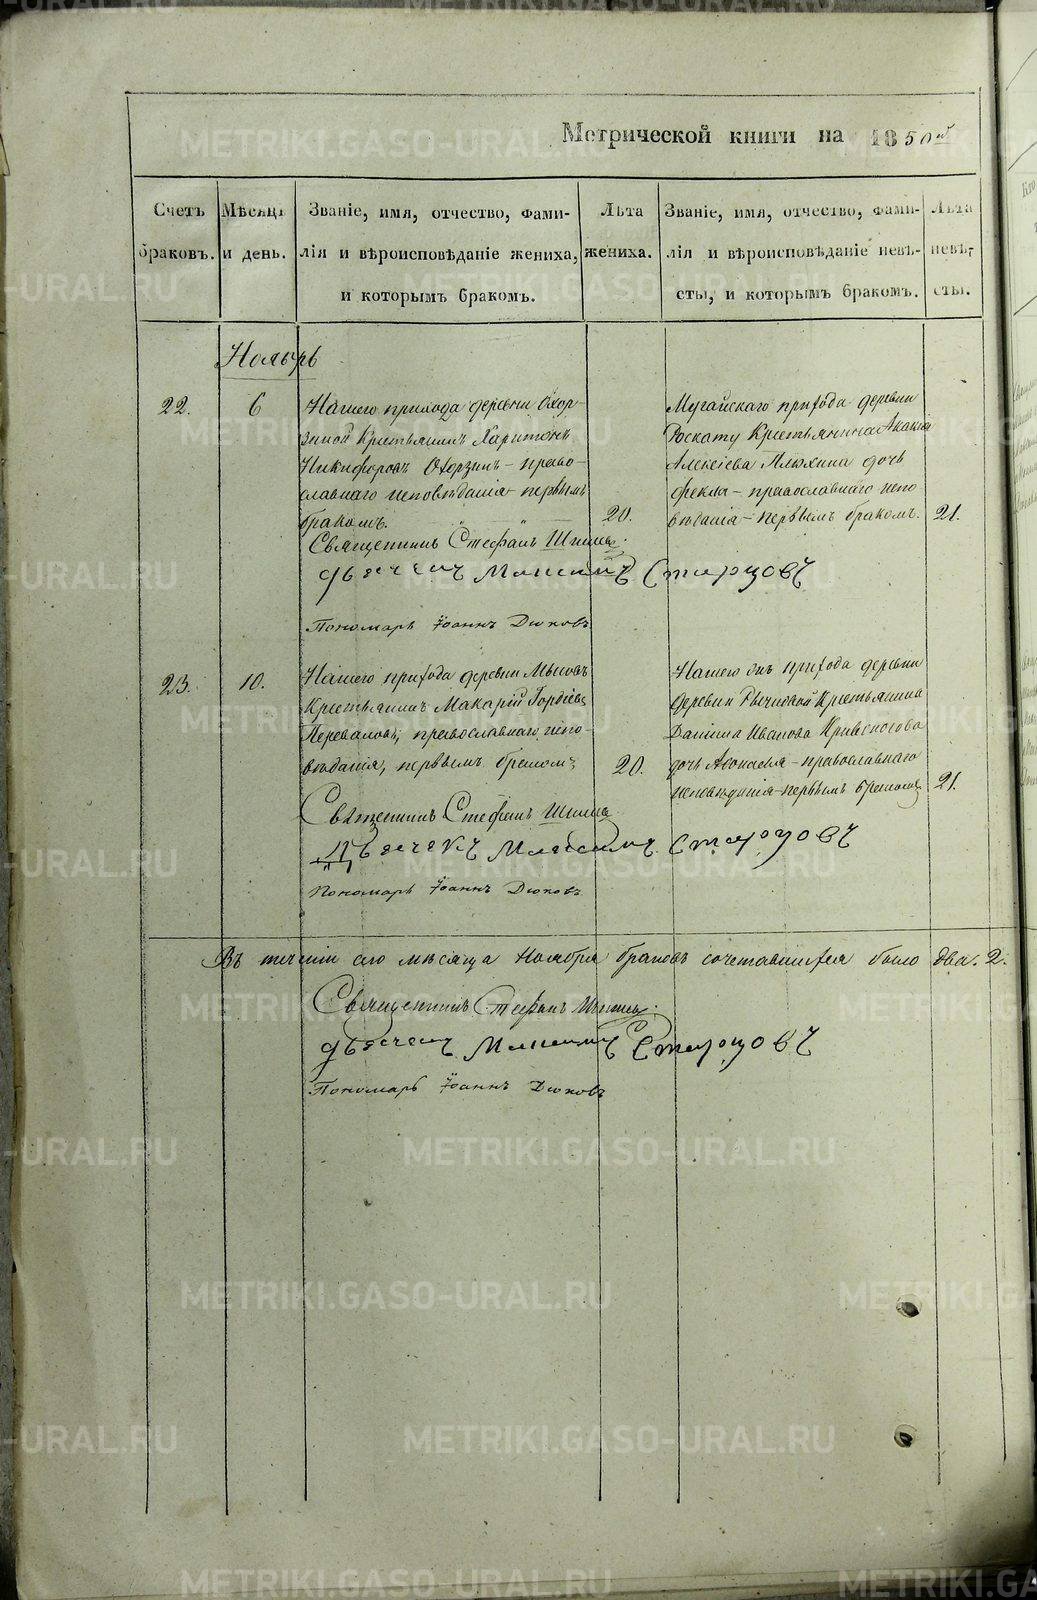 Метрической книги на 1850й
Счетъ браковъ.
Мѣсяцъ и день.
Званіе, имя, отчество, фами-
лія и вѣроисповѣданіе жениха,
и которымъ бракомъ.
Лѣта
жениха.
Званіе, имя, отчество, фами-
лія и вѣроисповѣданіе невѣ-
сты, и которымъ бракомъ.
Лѣта
невѣ-
сты.
Ноябрь
22.
6
Нашего прихода деревни Охор-
зиной Крестьянинъ Харитонъ
Никифоровъ Охорзинъ – право-
славнаго исповѣданія – первымъ
бракомъ.
20.
Мугайскаго прихода деревни
Роскату Крестьянина Акакія
Алексѣева Плюхина дочь
Фекла – православнаго испо-
вѣданія – первымъ бракомъ.
21.
Священникъ Стефанъ
Дьячекъ Максимъ Старцовъ
Пономарь Іоаннъ Дюковъ
23.
10.
Нашего прихода деревни Мысовъ
Крестьянинъ Макарій Гордѣевъ
Переваловъ, православнаго испо-
вѣданія, первымъ бракомъ
20.
Нашего же прихода деревни
деревни Крестьянина
Даніила Иванова Кривоногова
дочь – православнаго
исповѣданія – первымъ бракомъ
21.
Священникъ Стефанъ
Дьячекъ Максимъ Старцовъ
Пономарь Іоаннъ Дюковъ
Въ теченіи сего мѣсяца Ноября браковъ сочетавшихся было два. 2.
Священникъ Стефанъ
Дьячекъ Максимъ Старцовъ
Пономарь Іоаннъ Дюковъ
METRIKI.GASO-URAL.RU